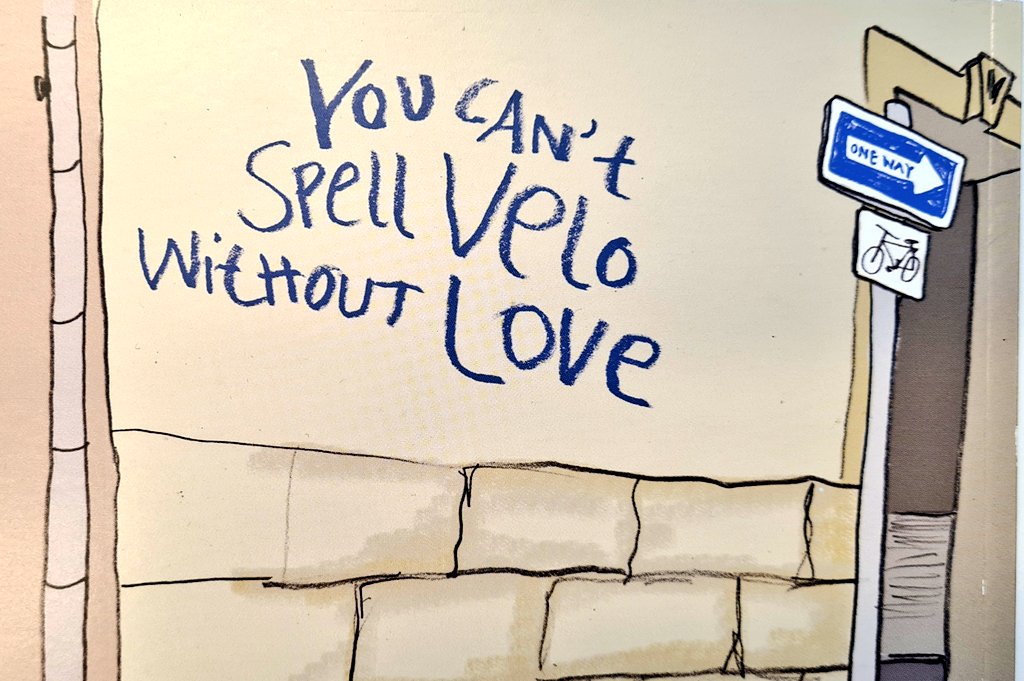 You CAN't
Spell Velo
WitHOUT Love
ONE WAY